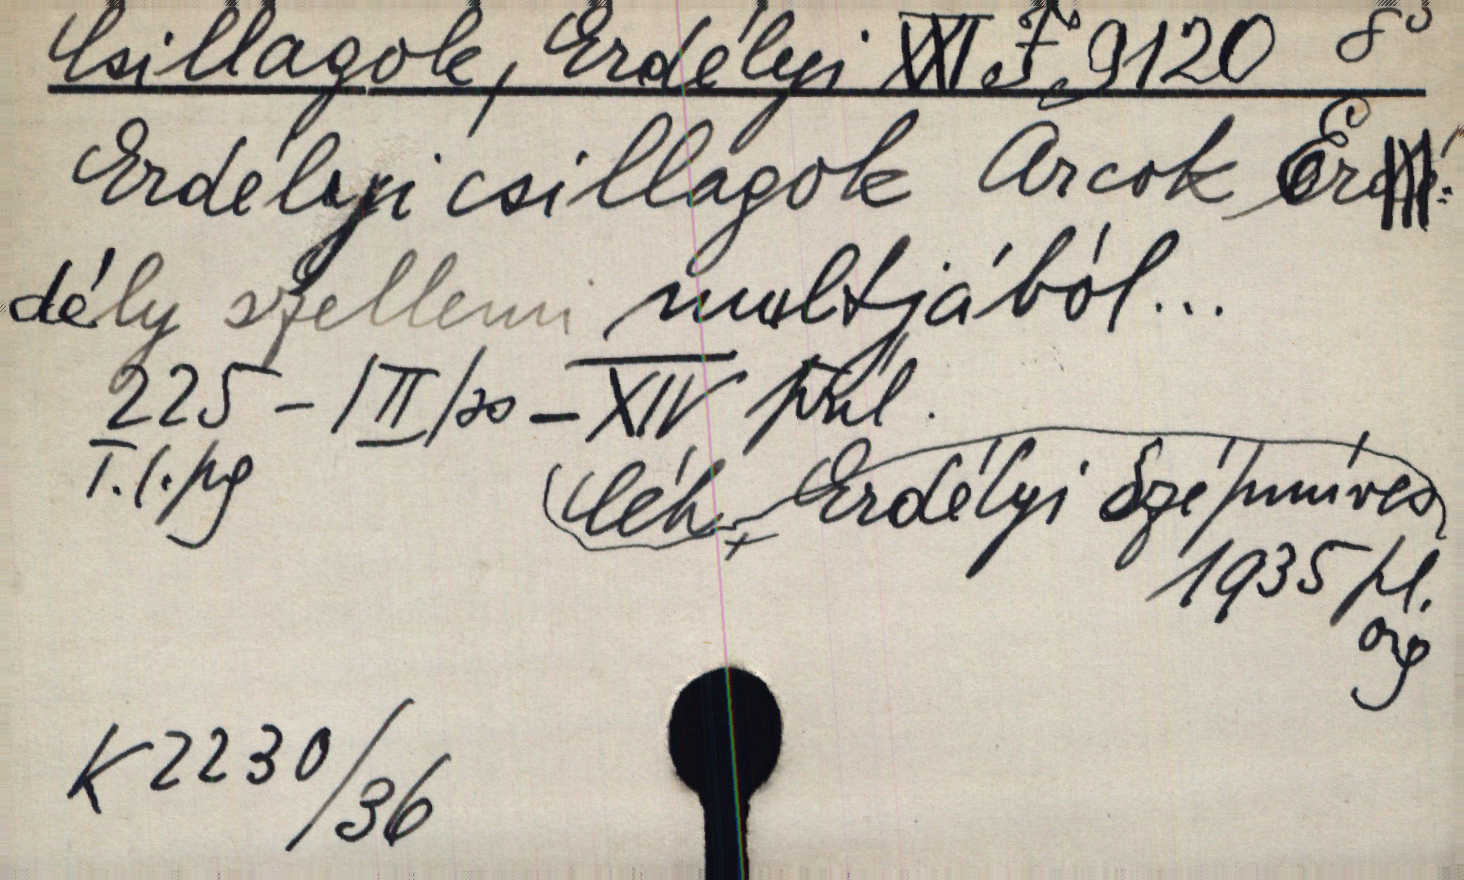 Csillagok, Erdélyi XXI. F. 9120 8°
Erdélyi csillagok Arcok Er-
dély szellemi multjából...
225 - /II/ - XIV
Céh Erdélyi Szépmíves
1935
K 2230/36